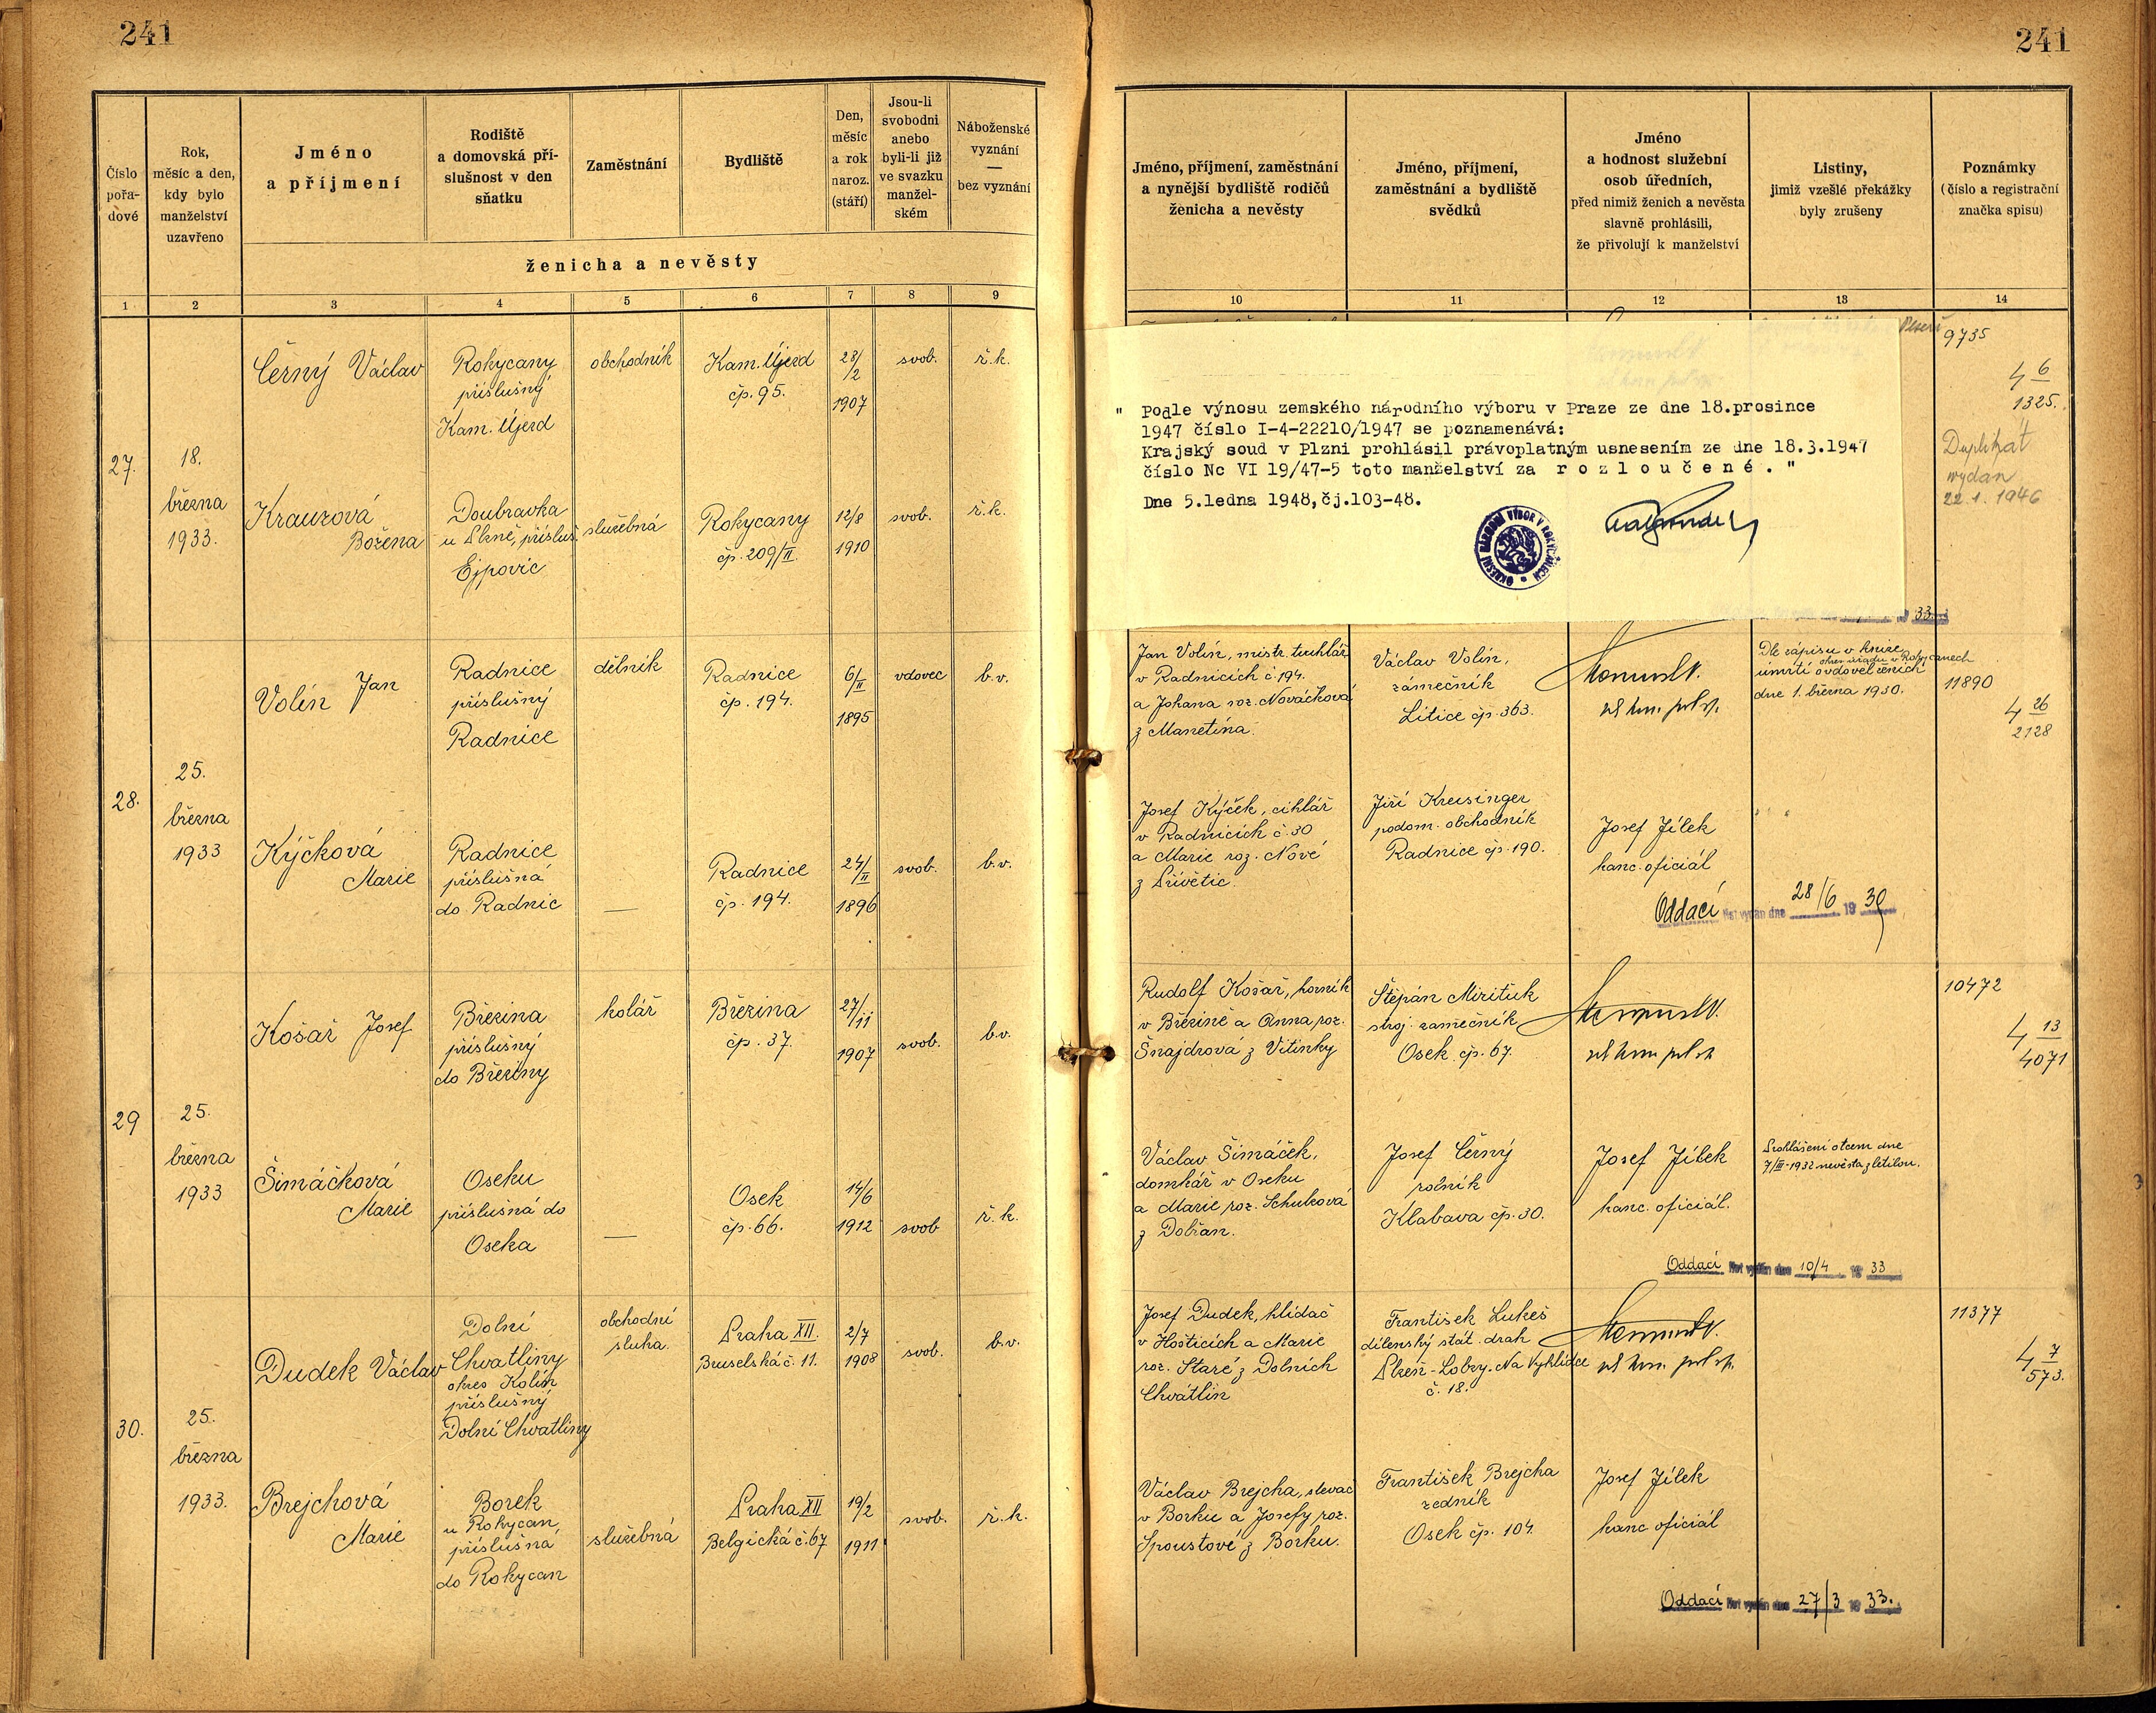 241
241
Číslo
pořa-
dové
Rok,
měsíc a den,
kdy bylo
manželství
uzavřeno
Jméno
a příjmení
Rodiště
a domovská pří-
slušnost v den
sňatku
Zaměstnání
Bydliště
Den,
měsíc
a rok
naroz.
(stáří)
Jsou-li
svobodni
anebo
byli-li již
ve svazku
manžel-
ském
Náboženské
vyznání
—
bez vyznání
ženicha a nevěsty
Jméno, příjmení, zaměstnání
a nynější bydliště rodičů
ženicha a nevěsty
Jméno, příjmení,
zaměstnání a bydliště
svědků
Jméno
a hodnost služební
osob úředních,
před nimiž ženich a nevěsta
slavně prohlásili,
že přivolují k manželství
Listiny,
jimiž vzešlé překážky
byly zrušeny
Poznámky
(číslo a registrační
značka spisu)
1 2 3 4 5 6 7 8 9
10 11 12 13 14
27.
18.
března
1933.
Černý Václav
Rokycany
příslušný
Kam. Újezd
obchodník
Kam. Újezd
čp. 95.
28/2
1907
svob.
ř.k.
Krauzová
Božena
Doubravka
u Plzně, přísluš.
Ejpovic
služebná
Rokycany
čp. 209/II
12/8
1910
svob.
ř.k.
" Podle výnosu zemského národního výboru v Praze ze dne 18.prosince
1947 číslo I-4-22210/1947 se poznamenává:
Krajský soud v Plzni prohlásil právoplatným usnesením ze dne 18.3.1947
číslo Nc VI 19/47-5 toto manželství za r o z l o u č e n é . "
Dne 5.ledna 1948,čj.103-48.
OKRESNÍ NÁRODNÍ VÝBOR V ROKYCANECH
33
9735
4 6
1325.
Duplikát
vydán
22.1. 1946
28.
25.
března
1933
Volín Jan
Radnice
příslušný
Radnice
dělník
Radnice
čp. 194.
6/II
1895
vdovec
b.v.
Kýčková
Marie
Radnice
příslušná
do Radnic
—
Radnice
čp. 194.
24/II
1896
svob.
b.v.
Jan Volín, mistr. truhlář
v Radnicích č. 194.
a Johana roz. Nováčková
z Manetína.
Václav Volín,
zámečník
Litice čp. 363.
Dle zápisu v knize
úmrtí okres. úřadu v Rokycanech
ovdověl ženich
dne 1. března 1930.
11890
4 26
2128
Josef Kýček, cihlář
v Radnicích č. 30
a Marie roz. Nové
z Přívětic.
Jiří Kreisinger
podom. obchodník
Radnice čp. 190.
Josef Jílek
kanc. oficiál
Oddací list vydán dne 28/6 19 39
29
25.
března
1933
Košař Josef
Březina
příslušný
do Březiny
kolář
Březina
čp. 37.
27/11
1907
svob.
b.v.
Šimáčková
Marie
Oseku
příslušná do
Oseka
—
Osek
čp. 66.
14/6
1912
svob
ř.k.
Rudolf Košař, horník
v Březině a Anna roz.
Šnajdrová z Vitinky
Štěpán Miřituk
stroj. zámečník
Osek čp. 67.
10472
4 13
4071
Václav Šimáček,
domkář v Oseku
a Marie roz. Schulcová
z Dobřan.
Josef Černý
rolník
Klabava čp. 30.
Josef Jílek
kanc. oficiál.
Prohlášení otcem dne
7/III-1932 nevěsta zletilou.
Oddací list vydán dne 10/4 19 33
30.
25.
března
1933.
Dudek Václav
Dolní
Chvatliny
okres Kolín
příslušný
Dolní Chvatliny
obchodní
sluha.
Praha XII.
Bruselská č. 11.
2/7
1908
svob.
b.v.
Brejchová
Marie
Borek
u Rokycan
příslušná
do Rokycan
služebná
Praha XII
Belgická č. 67
19/2
1911
svob.
ř.k.
Josef Dudek, hlídač
v Hošticích a Marie
roz. Staré z Dolních
Chvatlin
František Lukeš
dílenský stát. drah
Plzeň-Lobzy. Na Vyhlídce
č. 18.
11377
4 7
573.
Václav Brejcha, slévač
v Borku a Josefy roz.
Spoustové z Borku.
František Brejcha
zedník
Osek čp. 104.
Josef Jílek
kanc. oficiál
Oddací list vydán dne 27/3 19 33.